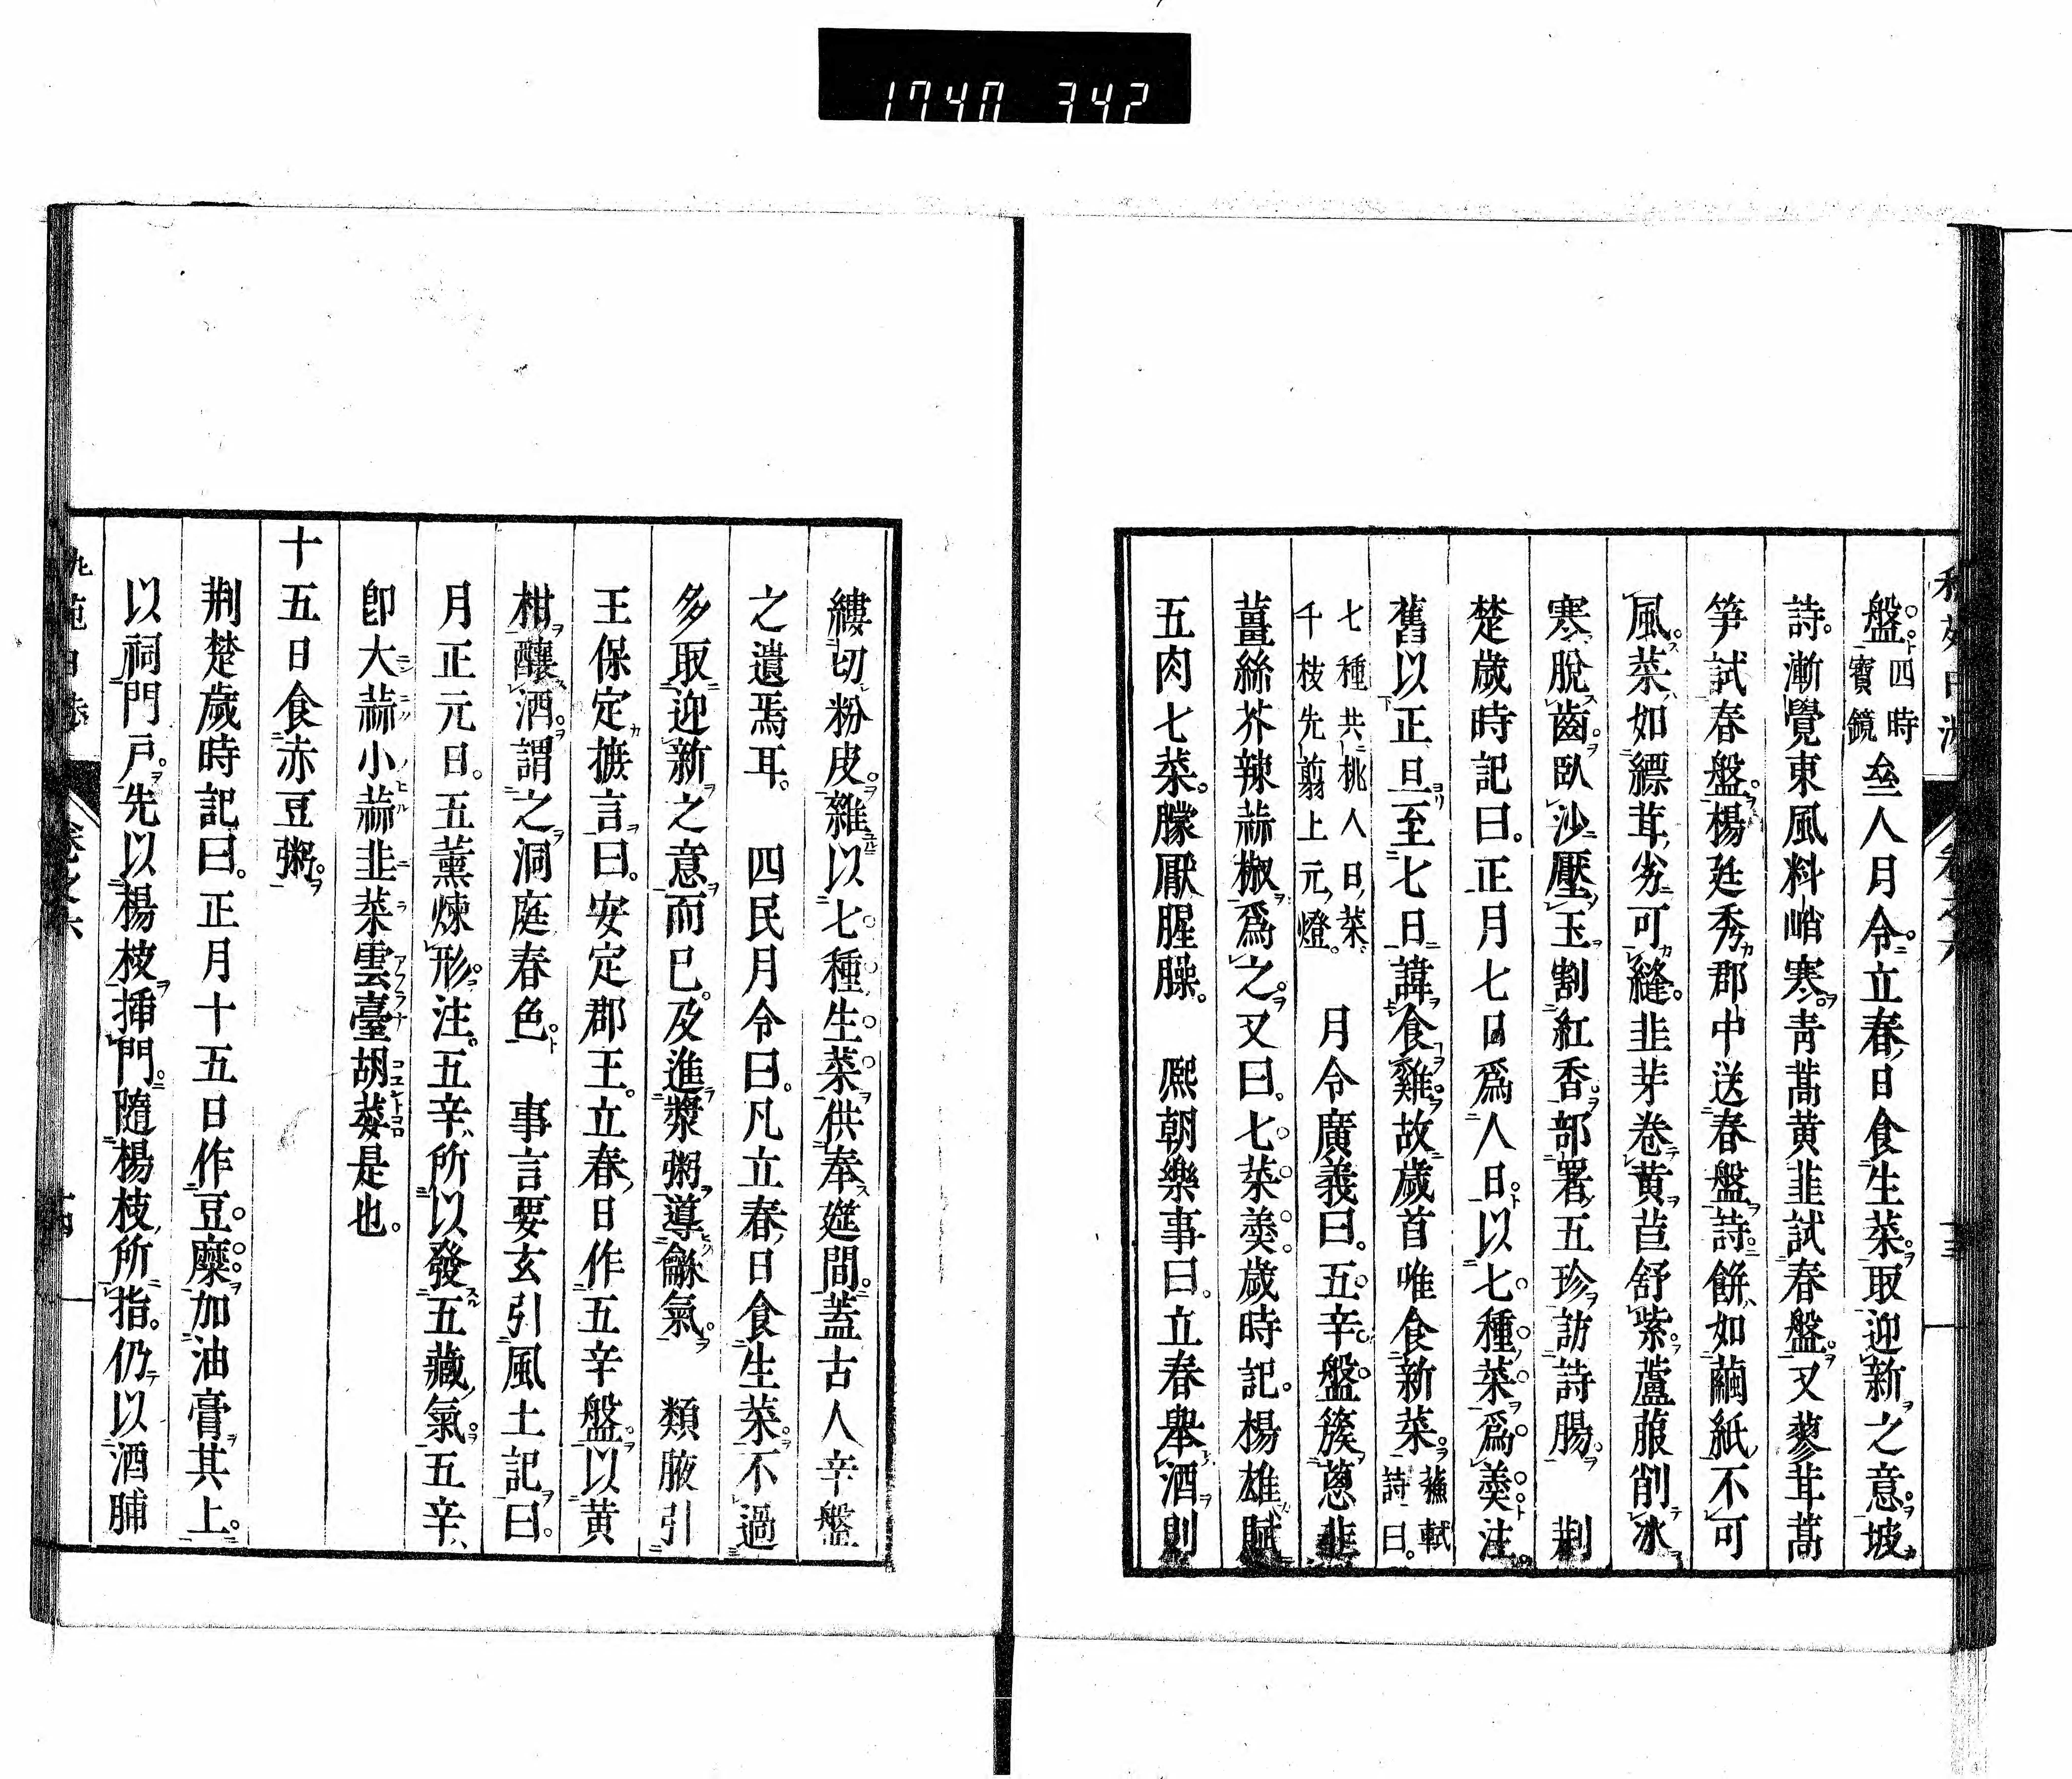 1740 342
盤四時寶鏡亝人月令。立春日食生菜。取迎新之意。坡
詩。漸覺東風料峭寒。青蒿黄韭試春盤。又蓼茸蒿
笋試春盤。楊廷秀郡中送春盤詩。餅如繭紙不可
風。菜如縹茸劣可縫。韭芽卷黄苣舒紫。蘆菔削冰
寒脫齒。臥沙壓玉割紅香。部署五珍訪詩腸。 荆
楚歲時記曰。正月七日爲人日。以七種菜爲羹。注。
舊以正旦至七日諱食雞。故歲首唯食新菜。蘇軾詩曰。
七種共挑人日菜千枝先剪上元燈。 月令廣義曰。五辛盤。簇蔥韭
薑絲芥辣蒜椒爲之。又曰。七菜羹。歲時記。楊雄賦
五肉七菜。朦厭腥臊。 熈朝樂事曰。立春舉酒則
縷切粉皮。雜以七種生菜供奉筵間。蓋古人辛盤
之遺焉耳。 四民月令曰。凡立春日食生菜。不過
多取迎新之意而已。及進漿粥導龢氣。 類腋引
王保定摭言曰。安定郡王。立春日作五辛盤。以黄
柑釀酒。謂之洞庭春色。 事言要玄引風土記曰。
月正元日。五薰煉形。注。五辛所以發五藏氣。五辛、
卽大蒜小蒜韭菜雲臺胡荽是也。
十五日食赤豆粥。
荆楚歲時記曰。正月十五日作豆糜加油膏其上。
以祠門戸。先以楊枝揷門。隨楊枝所指。仍以酒脯